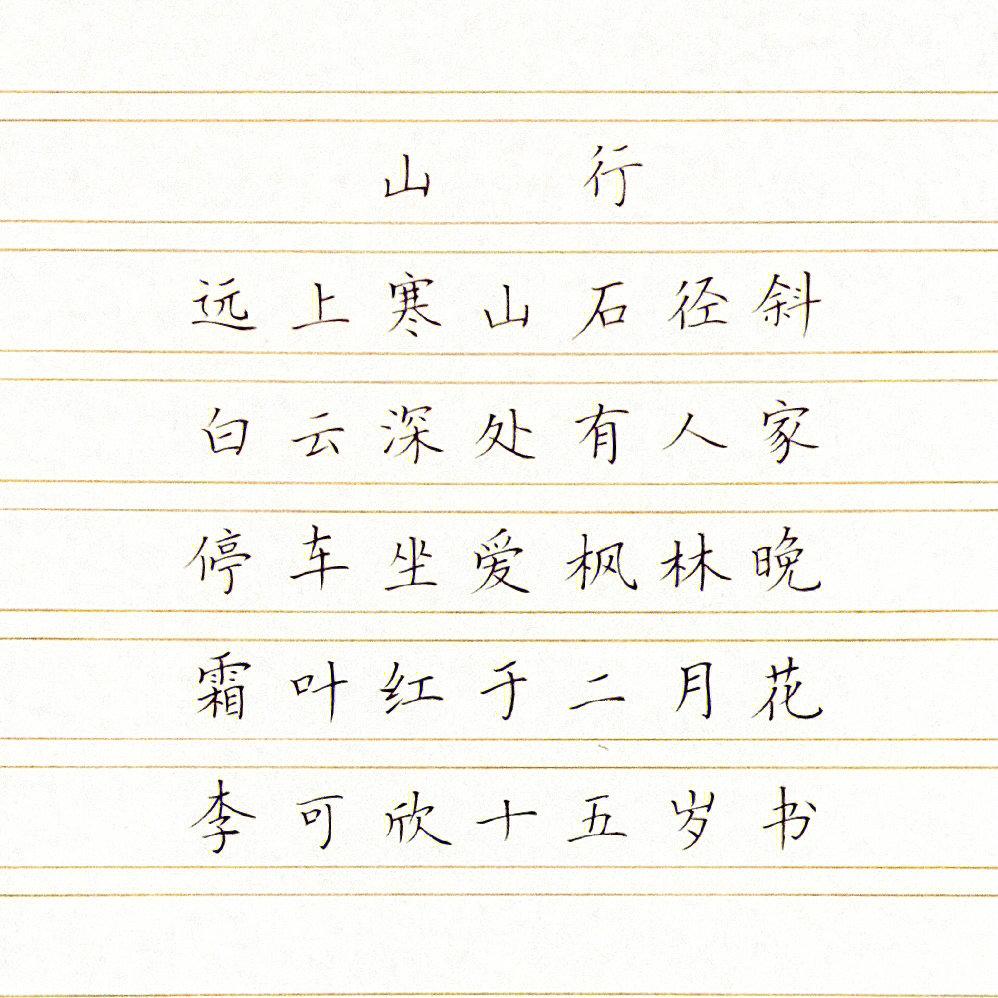 山 行
远上寒山石径斜
白云深处有人家
停车坐爱枫林晚
霜叶红于二月花
李可欣十五岁书